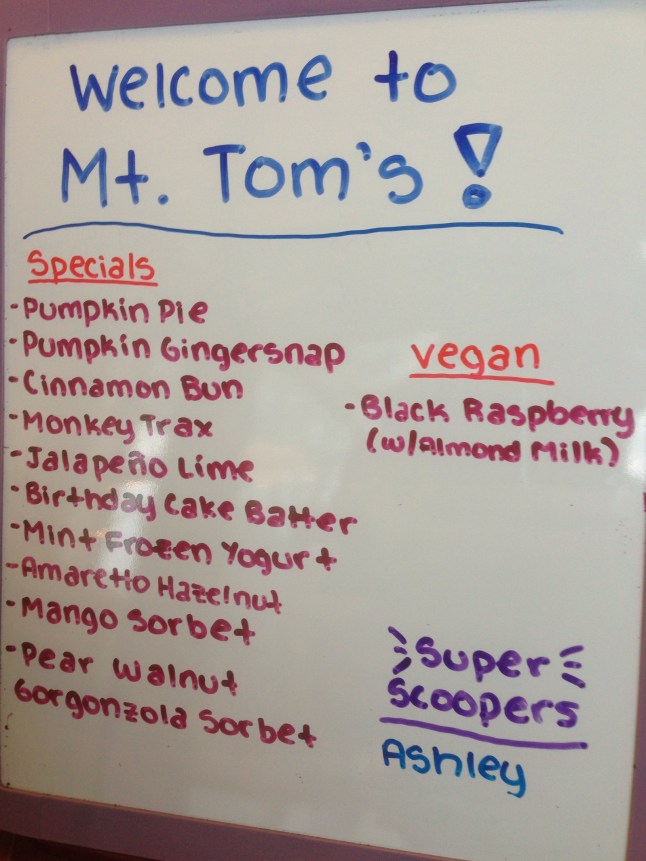 Welcome to
Mt. Tom's!
Specials
-Pumpkin Pie
-Pumpkin Gingersnap
-Cinnamon Bun
-Monkey Trax
-Jalapeño Lime
-Birthday Cake Batter
-Mint Frozen Yogurt
-Amaretto Hazelnut
-Mango Sorbet
-Pear Walnut
Gorgonzola Sorbet
Vegan
-Black Raspberry
(w/Almond Milk)
Super
Scoopers
Ashley